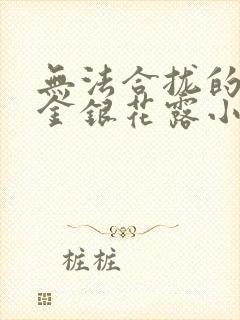 無法合拢的
金銀花露小
桩桩